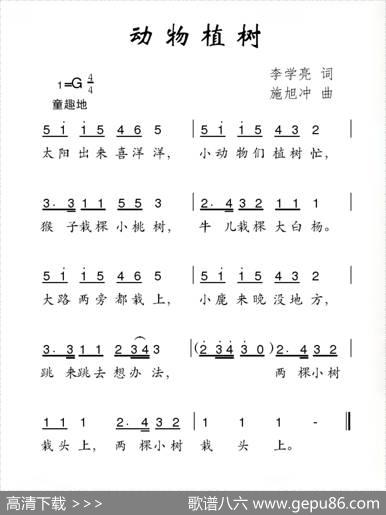 动物植树
李学亮 词
1=G 4/4
施旭冲 曲
童趣地
5 1̇ 1̇ 5 4 6 5 | 5 1̇ 1̇ 5 4 3 2 |
太阳出来喜洋洋， 小动物们植树忙，
3. 3 1 1 5 5 3 | 2. 4 3 2 1 1 1 |
猴子栽棵小桃树， 牛儿栽棵大白杨。
5 1̇ 1̇ 5 4 6 5 | 5 1̇ 1̇ 5 4 3 2 |
大路两旁都栽上， 小鹿来晚没地方，
3. 3 1 1 2 3 4 3 | (2̇ 3̇ 4̇ 3̇ 0) 2. 4 3 2 |
跳来跳去想办法， 两棵小树
1 1 1 2. 4 3 2 | 1 1 1 - ‖
栽头上，两棵小树 栽头上。
高清下载 >>>
歌谱八六 www.gepu86.com